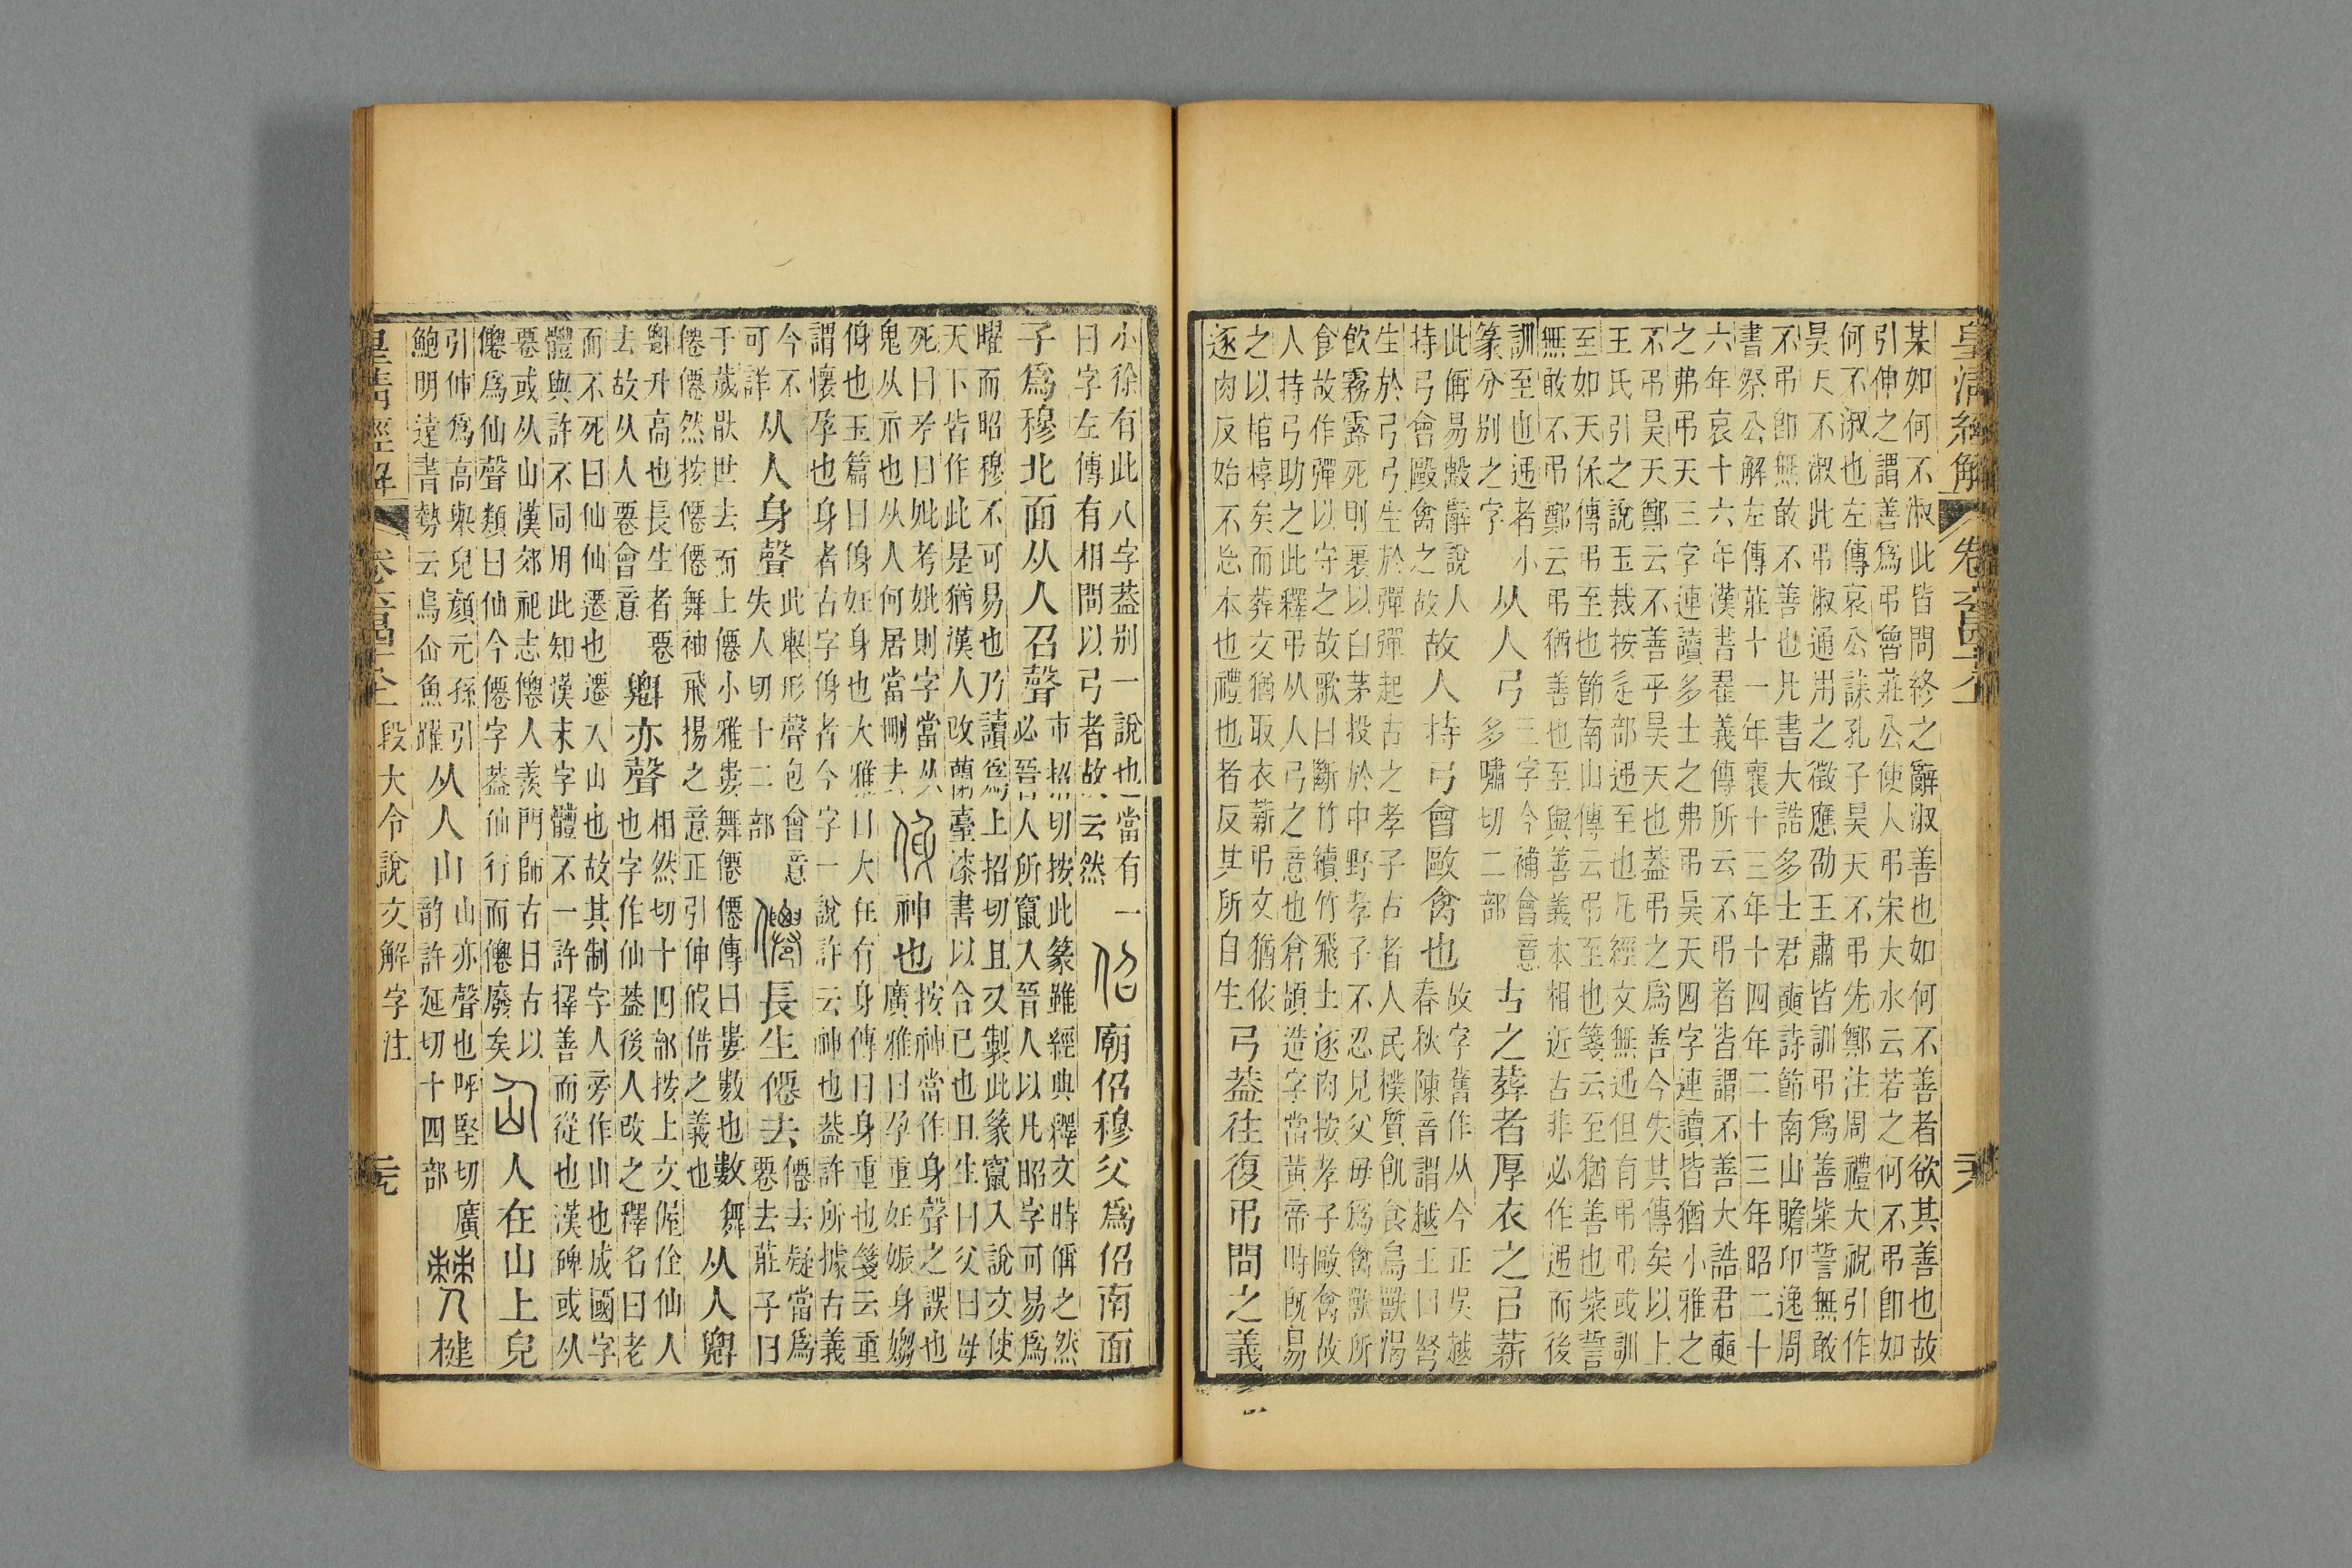 皇清經解 卷六百四十八上 二八
某如何不淑此皆問終之辭淑善也如何不善者欲其善也故
引伸之謂善爲弔魯莊公使人弔宋大水云若之何不弔卽如
何不淑也左傳哀公誄孔子昊天不弔先鄭注周禮大祝引作
昊天不淑此弔淑通用之徵應劭王肅皆訓弔爲善柴誓無敢
不弔卽無敢不善也凡書大誥多士君奭詩節南山瞻卬逸周
書祭公解左傳莊十一年襄十三年十四年二十三年昭二十
六年哀十六年漢書翟義傳所云不弔者皆謂不善大誥君奭
之弗弔天三字連讀多士之弗弔昊天四字連讀皆猶小雅之
不弔昊天鄭云不善乎昊天也蓋弔之爲善今失其傳矣以上
王氏引之說玉裁按辵部𨒛至也凡經文無𨒛但有弔弔或訓
至如天保傳弔至也節南山傳云弔至也箋云至猶善也柴誓
無敢不弔鄭云弔猶善也至與善義本相近古非必作𨒛而後
訓至也𨒛者小
篆分別之字
从人弓
三字今補會意
多嘯切二部
古之葬者厚衣之㠯薪
此偁易𣪠辭說人
持弓會毆禽之故
故人持弓會敺禽也
故字舊作从今正吳越
春秋陳音謂越王曰弩
生於弓弓生於彈彈起古之孝子古者人民樸質飢食鳥獸渴
飲霧露死則裹以白茅投於中野孝子不忍見父母爲禽獸所
食故作彈以守之故歌曰斷竹續竹飛土逐肉按孝子敺禽故
人持弓助之此釋弔从人弓之意也倉頡造字當黃帝時旣易
之以棺椁矣而葬文猶取衣薪弔文猶依
逐肉反始不忘本也禮也者反其所自生
弓蓋往復弔問之義
小徐有此八字蓋別一說也當有一
曰字左傳有相問以弓者故云然
佋廟佋穆父爲佋南面
子爲穆北面从人召聲
市招切按此篆雖經典釋文時偁之然
必晉人所竄入晉人以凡昭字可易爲
曜而昭穆不可易也乃讀爲上招切且又製此篆竄入說文使
天下皆作此是猶漢人改蘭臺漆書以合己也且生曰父曰母
死曰考曰妣考妣則字當从
鬼从示也从人何居當刪去
㑗神也
按神當作身聲之誤也
廣雅曰孕重妊娠身㜨
㑗也玉篇曰㑗妊身也大雅曰大任有身傳曰身重也箋云重
謂懷孕也身者古字㑗者今字一說許云神也蓋許所據古義
今不
可詳
从人身聲
此舉形聲包會意
失人切十二部
僊長生僊去
僊去疑當爲
䙴去莊子曰
千歲猒世去而上僊小雅婁舞僊僊傳曰婁數也數舞
僊僊然按僊僊舞袖飛揚之意正引伸假借之義也
从人䙴
䙴升高也長生者䙴
去故从人䙴會意
䙴亦聲
相然切十四部按上文偓佺仙人
也字作仙蓋後人改之釋名曰老
而不死曰仙仙遷也遷入山也故其制字人旁作山也成國字
體與許不同用此知漢末字體不一許擇善而從也漢碑或从
䙴或从山漢郊祀志僊人羨門師古曰古以
僊爲仙聲類曰仙今僊字蓋仙行而僊廢矣
仚人在山上皃
引伸爲高舉皃顏元孫引
鮑明遠書勢云鳥仚魚躍
从人山
山亦聲也呼堅切廣
韵許延切十四部
僰犍
皇清經解 卷六百四十八上 段大令說文解字注 二九